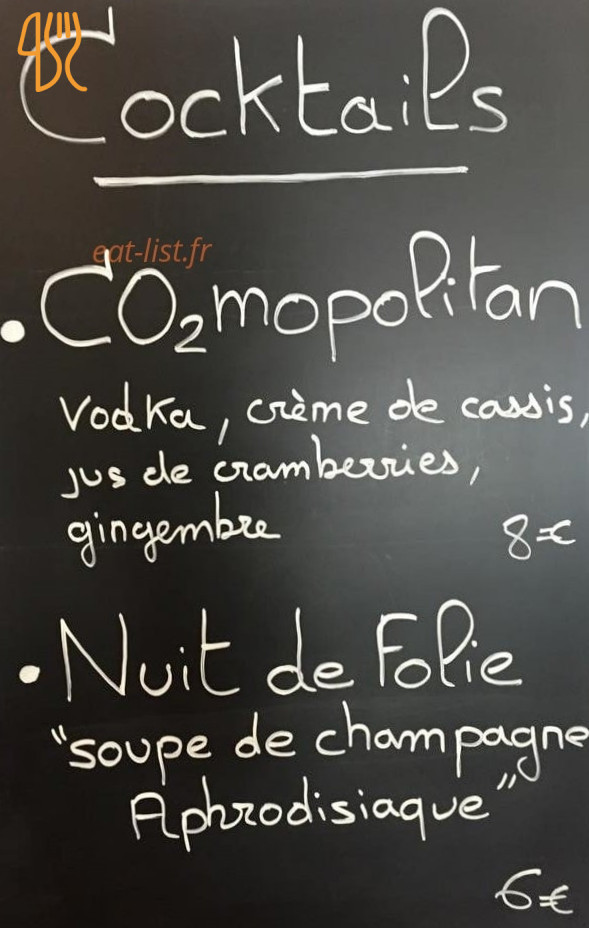 Cocktails
eat-list.fr
• CO₂mopolitan
Vodka, crème de cassis,
jus de cramberries,
gingembre 8€
• Nuit de Folie
"soupe de champagne
Aphrodisiaque"
6€